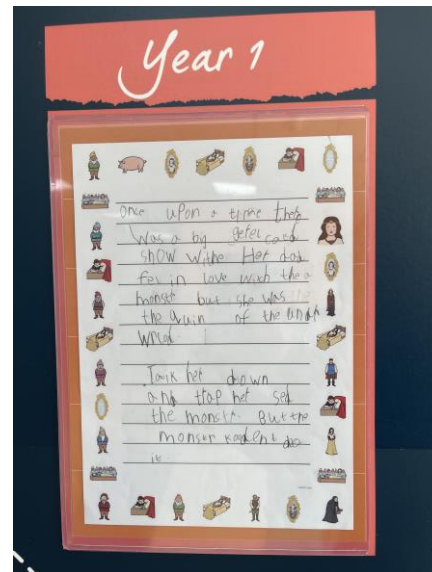 Year 1
Once upon a time ther
was a by gerel card
show withe Her dad
fes in love with the
monstr but she was
the quin of the undr
wrlod.
Taik her down
and trap her sed
the monstr. But the
monstr kodent do
it.